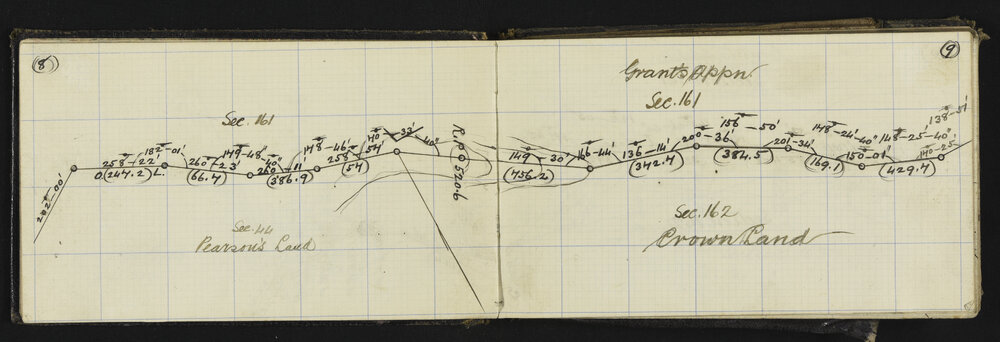 8
Sec. 161
202°-00'
258°-22'
0.(244.2)L.
182°-01'
260°-23'
(66.4)
149°-48'-40"
260°-11'
(386.9)
148°-46'
258°-54'
(54)
140°-33'-40"
R.P.
520.6
Sec. 44
Pearson's Land
9
Grant's Appn.
Sec. 161
149°-30'
(756.2)
166-44'
136°-14'
(342.4)
200°-36'
156°-50'
(384.5)
201°-34'
148°-24'-40"
(169.1)
150°-01'
148°-25'-40"
(429.4)
138°-51'
140-25
Sec. 162
Crown Land